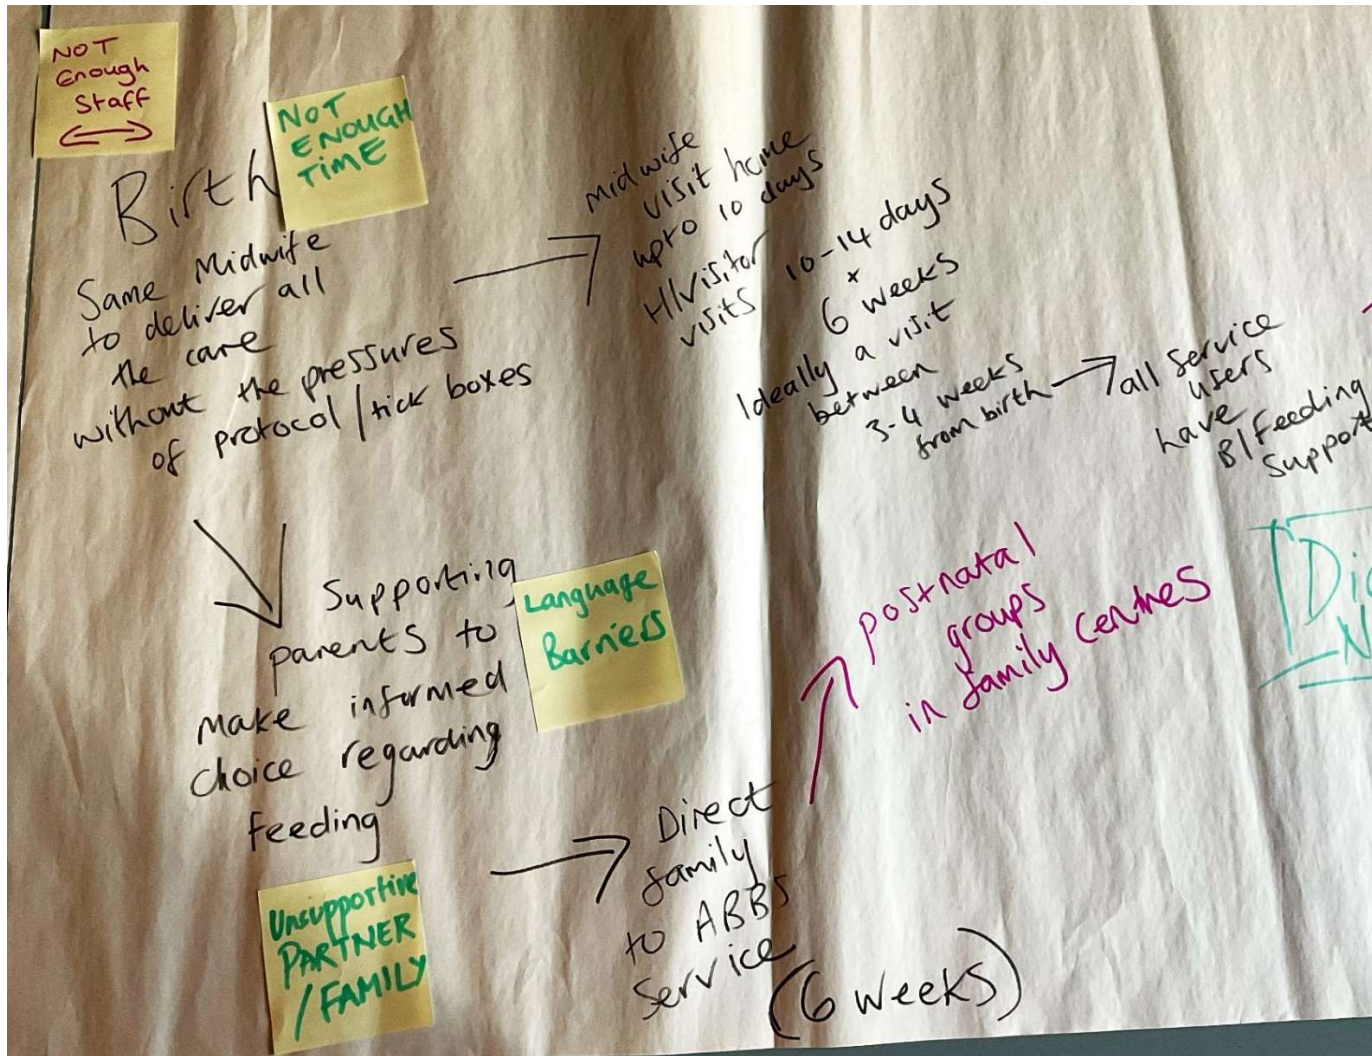 NOT
Enough
Staff
NOT
ENOUGH
TIME
Birth
Same Midwife
to deliver all
the care
without the pressures
of protocol/tick boxes
midwife
visit home
upto 10 days
H/Visitor
visits 10-14 days
+
6 weeks
Ideally a visit
between
3-4 weeks
from birth
all service
users
have
B/Feeding
Support
Supporting
parents to
make informed
choice regarding
feeding
Language
Barriers
Unsupportive
PARTNER
/FAMILY
Direct
family
to ABBS
Service
(6 weeks)
postnatal
groups
in family centres